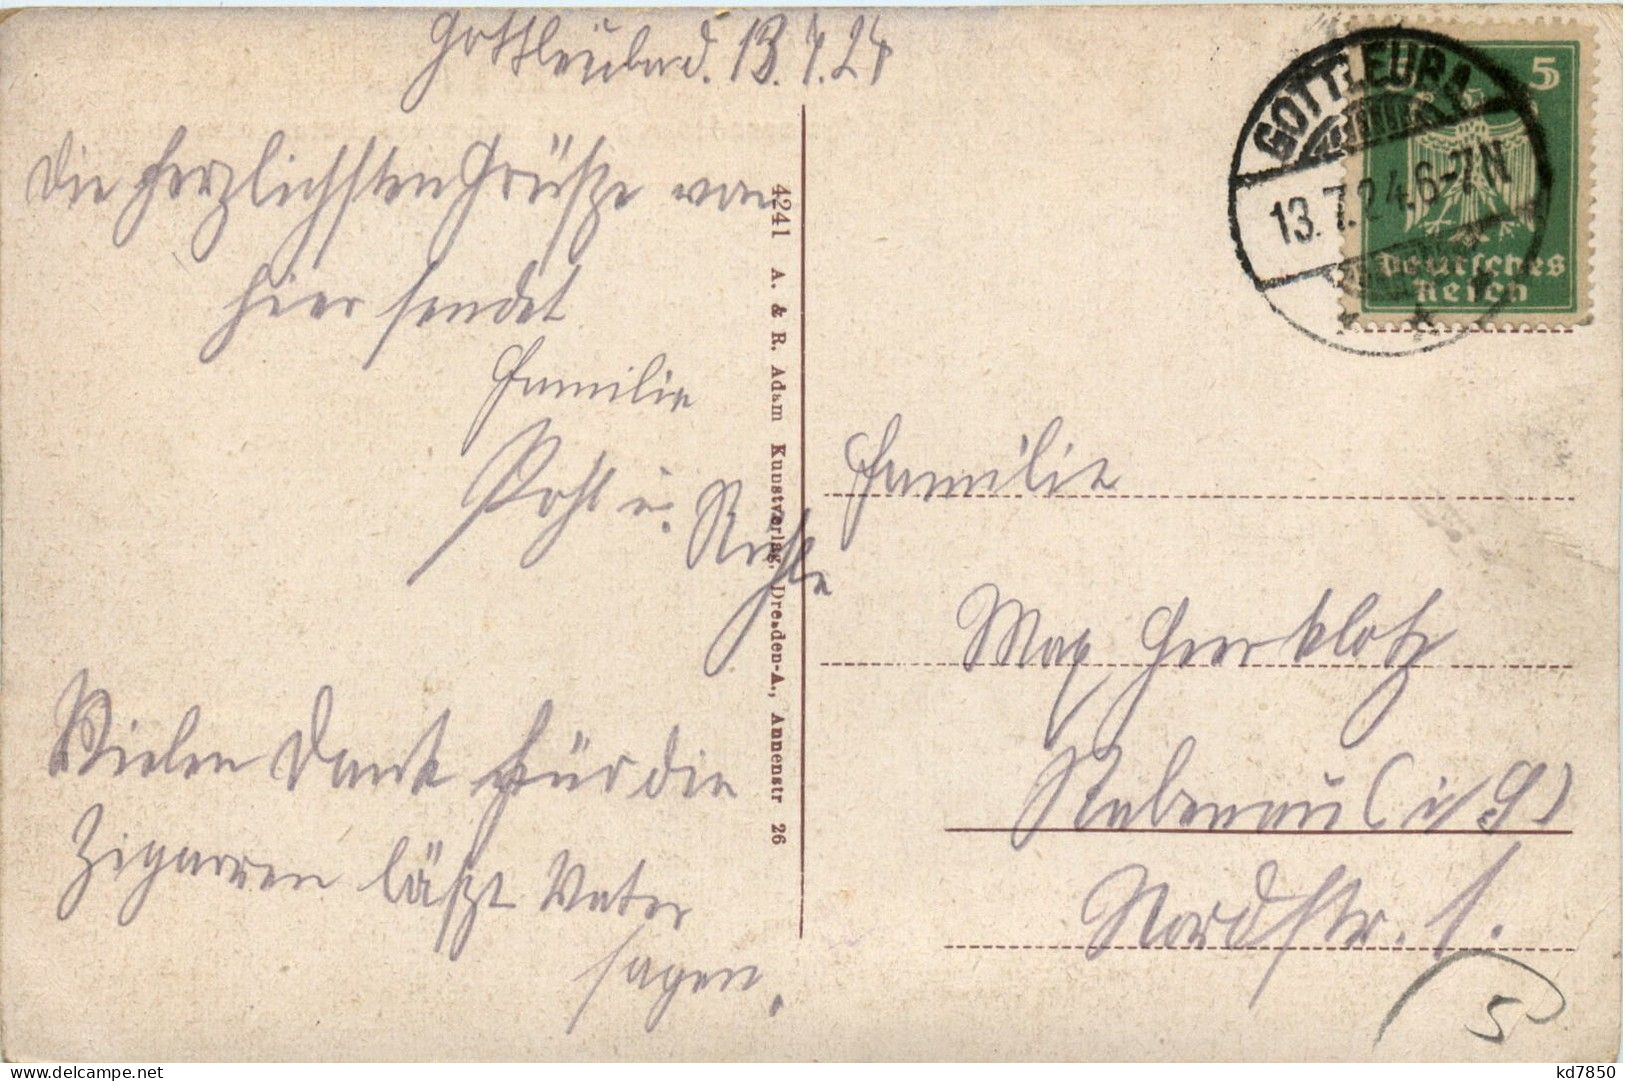 Gottleuba d. 13.7.24
Die herzlichsten Grüsze von
hier sendet
Familie
Pohl u. Ruhle
Vielen Dank für die
Zigarren läszt Vater
sagen.
4241 A. & R. Adam Kunstverlag, Dresden-A., Annenstr 26
GOTTLEUBA
13.7.24.6-7N
5
Deutsches
Reich
Familie
Max Heerklotz
Rabenau (i/S)
Nordstr. 1.
5
kd7850